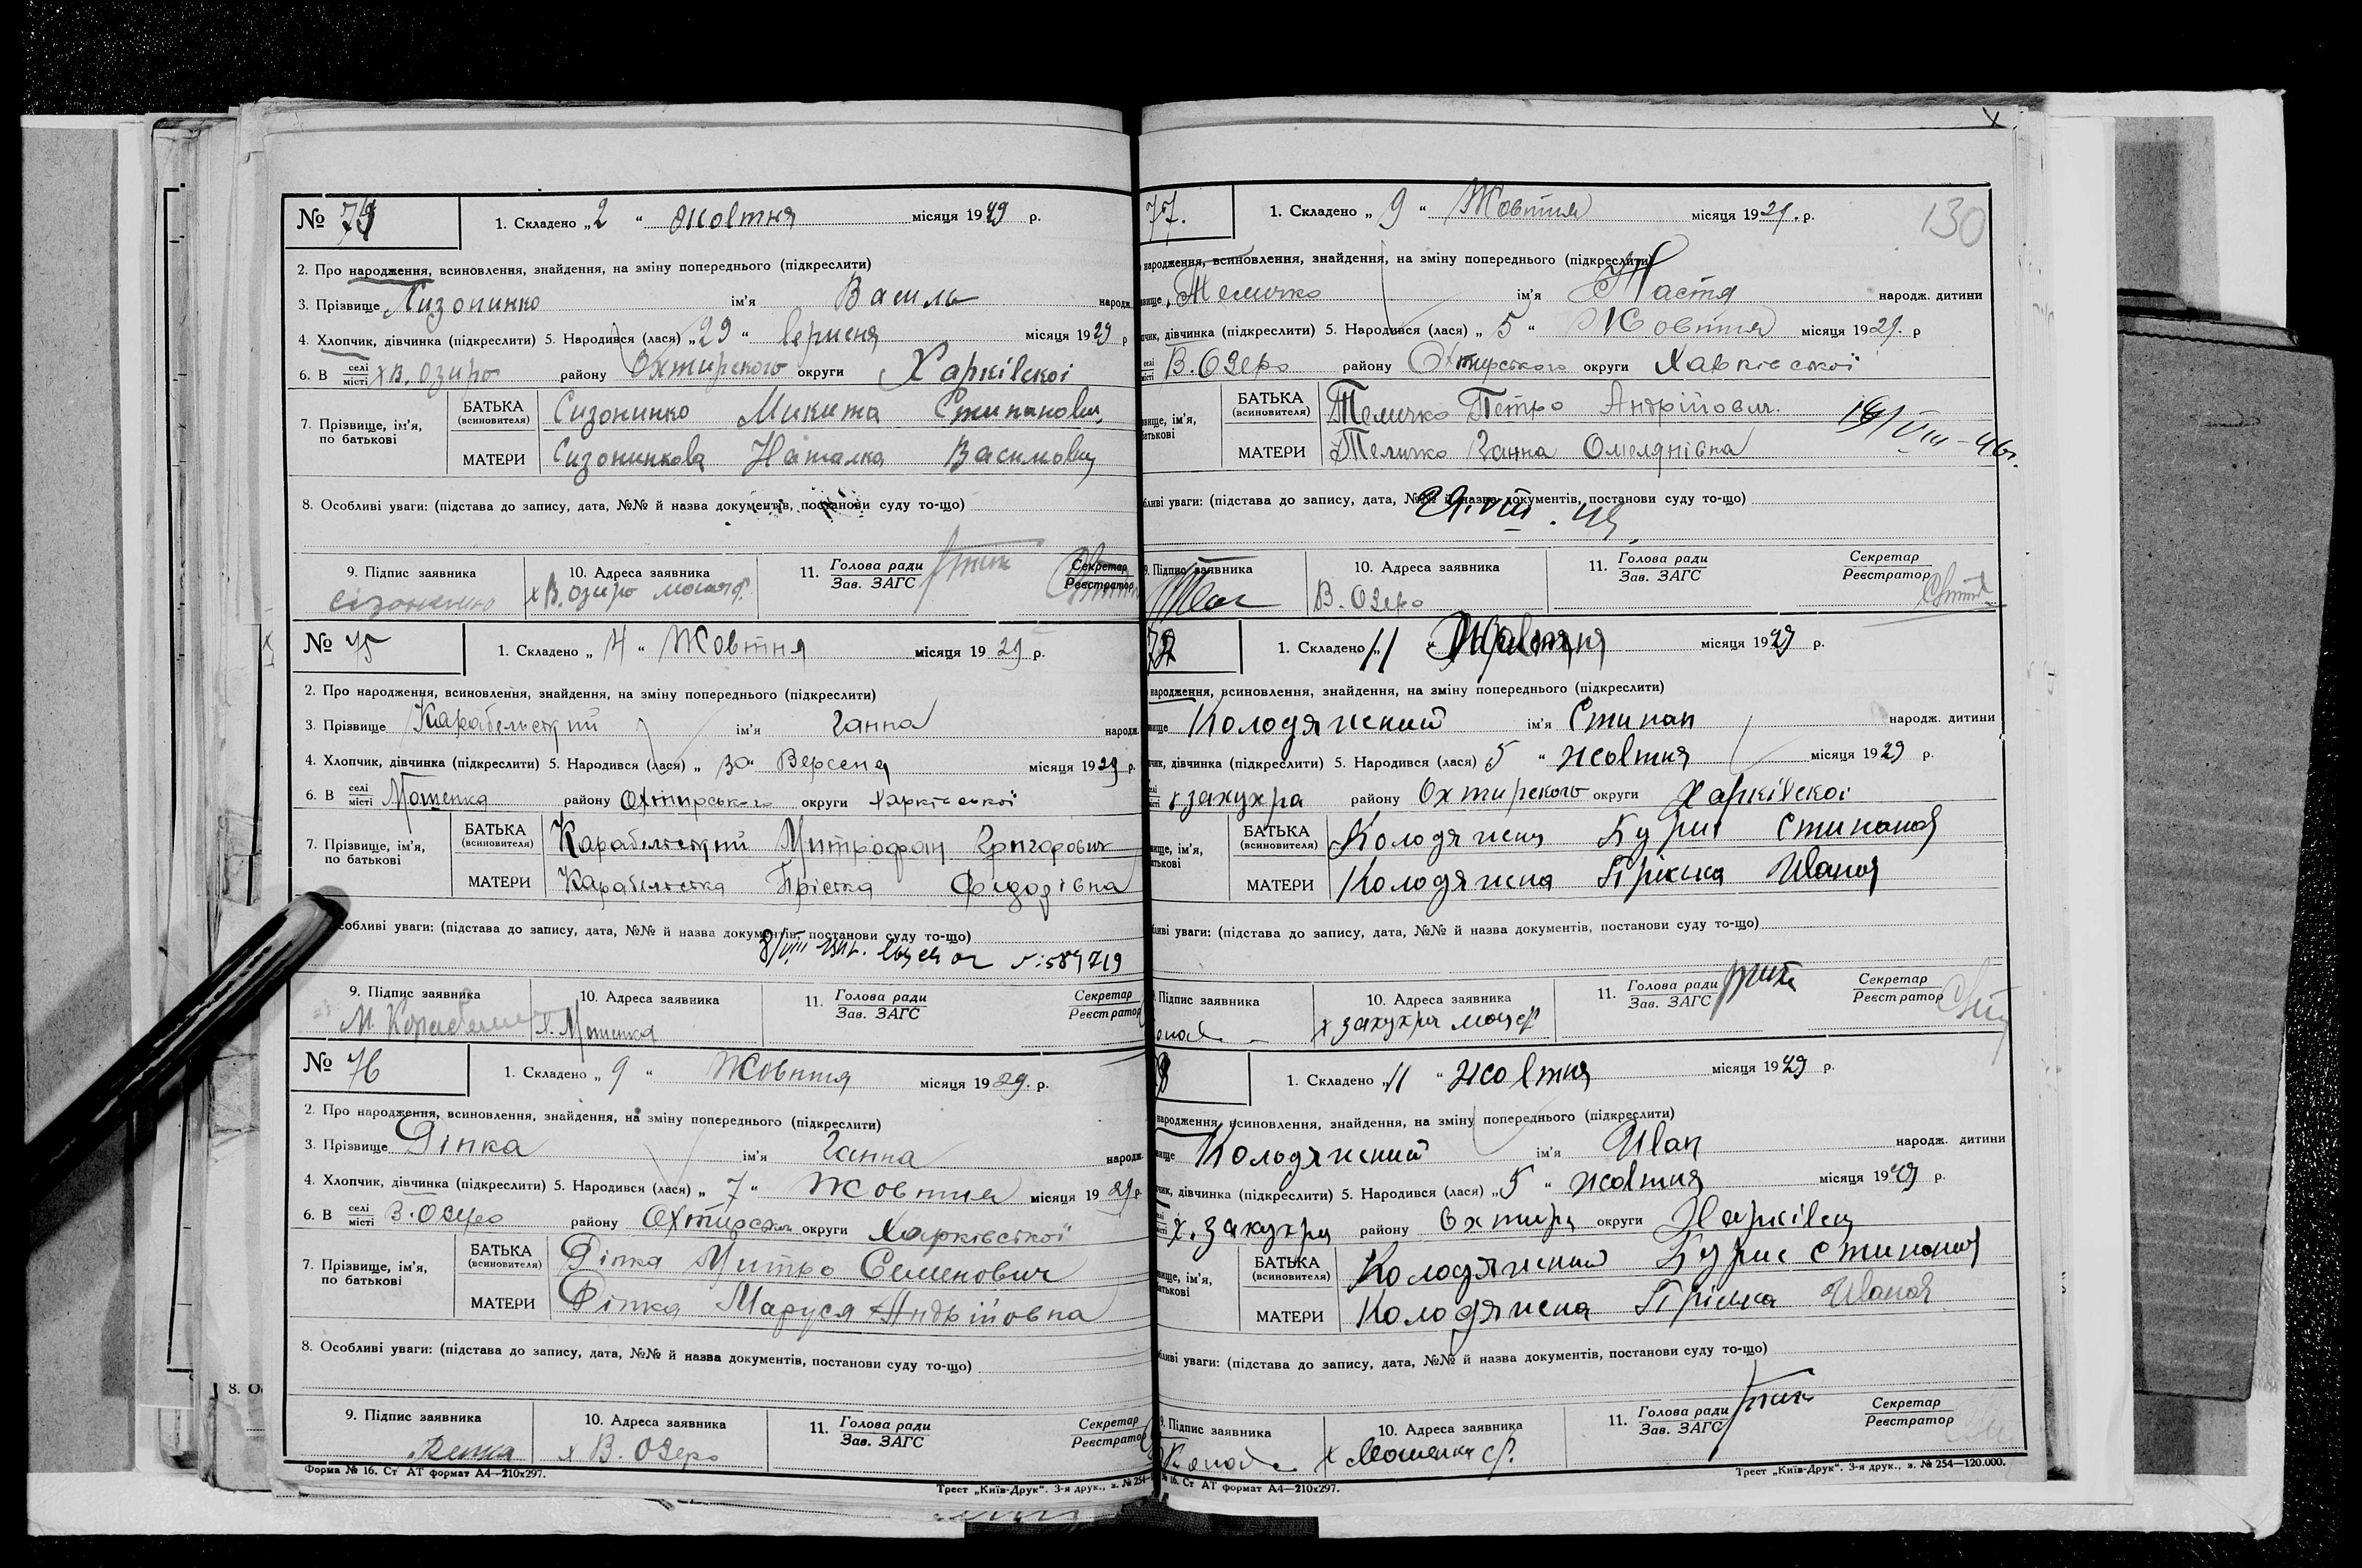 № 74
1. Складено „ 2 “ жовтня місяця 1929 р.
2. Про народження, всиновлення, знайдення, на зміну попереднього (підкреслити)
3. Прізвище Сизонинко ім'я Василь народж.
4. Хлопчик, дівчинка (підкреслити) 5. Народився (лася) „ 29 “ версня місяця 1929 р
6. В селі місті х В. Озиро району Охтирского округи Харківскоі
7. Прізвище, ім'я, по батькові БАТЬКА (всиновителя) Сизонинко Микита Стипанович
МАТЕРИ Сизонинкова Наталка Васимовн
8. Особливі уваги: (підстава до запису, дата, №№ й назва документів, постанови суду то-що)
9. Підпис заявника 10. Адреса заявника 11. Голова ради Зав. ЗАГС Секретар Реєстратор
х В. Озиро
№ 75
1. Складено „ 4 “ Жовтня місяця 1929 р.
2. Про народження, всиновлення, знайдення, на зміну попереднього (підкреслити)
3. Прізвище Карабельський ім'я Ганна народж.
4. Хлопчик, дівчинка (підкреслити) 5. Народився (лася) „ 30 “ Версеня місяця 1929 р.
6. В селі місті Мошенка району Охтирського округи Харківської
7. Прізвище, ім'я, по батькові БАТЬКА (всиновителя) Карабельський Митрофан Григорович
МАТЕРИ Карабельська Пріська Федорівна
собливі уваги: (підстава до запису, дата, №№ й назва документів, постанови суду то-що)
9. Підпис заявника 10. Адреса заявника 11. Голова ради Зав. ЗАГС Секретар Реєстратор
х. Мошенка
№ 76
1. Складено „ 9 “ Жовтня місяця 1929. р.
2. Про народження, всиновлення, знайдення, на зміну попереднього (підкреслити)
3. Прізвище Ріпка ім'я Ганна народж.
4. Хлопчик, дівчинка (підкреслити) 5. Народився (лася) „ 7 “ Жовтня місяця 1929 р.
6. В селі місті В. Озеро району Охтирськ округи Харківської
7. Прізвище, ім'я, по батькові БАТЬКА (всиновителя) Ріпка Митро Семенович
МАТЕРИ Ріпка Маруся Андрійовна
8. Особливі уваги: (підстава до запису, дата, №№ й назва документів, постанови суду то-що)
9. Підпис заявника 10. Адреса заявника 11. Голова ради Зав. ЗАГС Секретар Реєстратор
Репка х В. Озеро
Форма № 16. Ст АТ формат А4—210х297.
Трест „Київ-Друк“. 3-я друк., з. № 254
130
77.
1. Складено „ 9 “ Жовтня місяця 1929. р.
народження, всиновлення, знайдення, на зміну попереднього (підкреслити)
вище Теличко ім'я Настя народж. дитини
чик, дівчинка (підкреслити) 5. Народився (лася) „ 5 “ Жовтня місяця 1929. р
селі місті В. Озеро району Охтирського округи Харківської
вище, ім'я, батькові БАТЬКА (всиновителя) Теличко Петро Андрійович.
МАТЕРИ Теличко Ганна Омелянівна
бливі уваги: (підстава до запису, дата, №№ й назва документів, постанови суду то-що)
9. Підпис заявника 10. Адреса заявника 11. Голова ради Зав. ЗАГС Секретар Реєстратор
В. Озеро
1. Складено „ 11 “ Жовтня місяця 1929 р.
народження, всиновлення, знайдення, на зміну попереднього (підкреслити)
вище Колодяжний ім'я Стипан народж. дитини
чик, дівчинка (підкреслити) 5. Народився (лася) 5 “ жовтня місяця 1929 р.
селі місті х закухра району Охтирского округи Харківскоі
вище, ім'я, батькові БАТЬКА (всиновителя) Колодяжн Стипанов
МАТЕРИ Колодяжна Пріська Иванов
бливі уваги: (підстава до запису, дата, №№ й назва документів, постанови суду то-що)
Підпис заявника 10. Адреса заявника 11. Голова ради Зав. ЗАГС Секретар Реєстратор
х закухра
1. Складено „ 11 “ жовтня місяця 1929 р.
народження, всиновлення, знайдення, на зміну попереднього (підкреслити)
вище Колодяжний ім'я Иван народж. дитини
чик, дівчинка (підкреслити) 5. Народився (лася) „ 5 “ жовтня місяця 1929 р.
х. закухра району Охтирс округи Харківск
вище, ім'я, батькові БАТЬКА (всиновителя) Колодяжний Стипанов
МАТЕРИ Колодяжна Пріська Иванов
бливі уваги: (підстава до запису, дата, №№ й назва документів, постанови суду то-що)
9. Підпис заявника 10. Адреса заявника 11. Голова ради Зав. ЗАГС Секретар Реєстратор
№ 16. Ст АТ формат А4—210х297.
Трест „Київ-Друк“. 3-я друк., з. № 254—120.000.